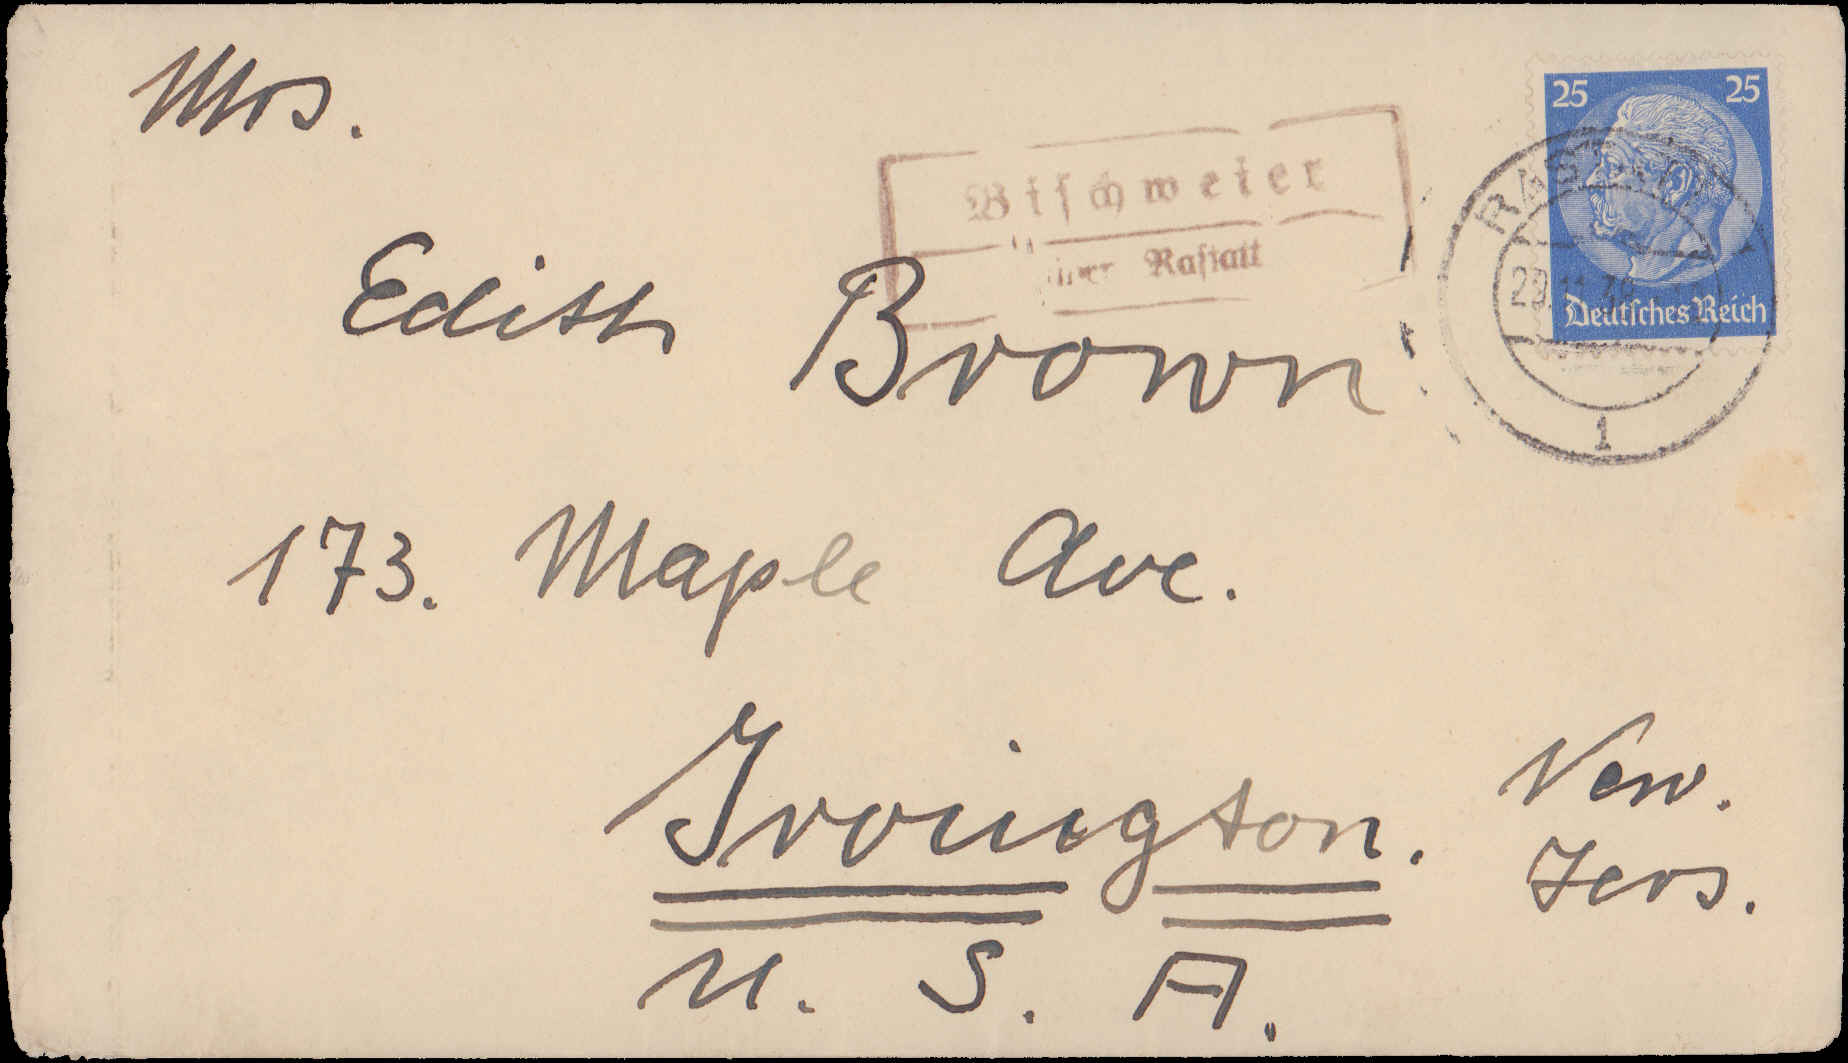 Mrs.
Edith Brown
173. Maple Ave.
Irvington. New.
Jers.
U. S. A.
Bischweier
über Rastatt
25 25
Deutsches Reich
RASTATT
1